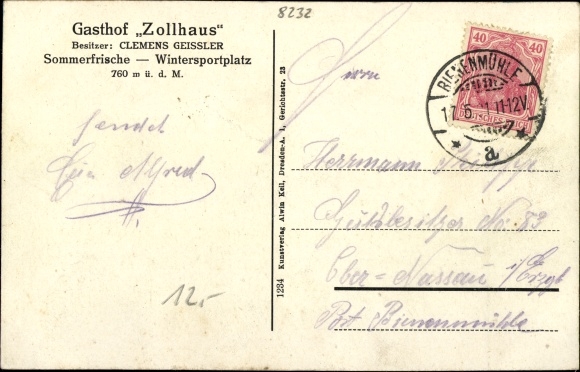 8232
Gasthof „Zollhaus"
Besitzer: CLEMENS GEISSLER
Sommerfrische — Wintersportplatz
760 m ü. d. M.
sendet
Alfred
12.-
1234 Kunstverlag Alwin Keil, Dresden-A. 1, Gerichtsstr. 23
40 40
DEUTSCHES REICH
BIENENMÜHLE
11-12V
* a *
Herrn
Herrmann
Gutsbesitzer No. 83
Ober=Nassau i/Erzgb
Post Bienenmühle